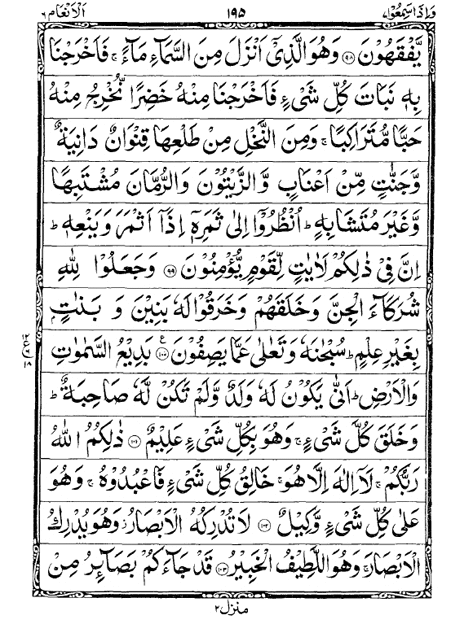 وَاِذَا سَمِعُوْا ٧ ١٩٥ اَلْاَنْعَام ٦
يَّفْقَهُوْنَ ﴿٩٨﴾ وَهُوَ الَّذِيْۤ اَنْزَلَ مِنَ السَّمَآءِ مَآءً ۚ فَاَخْرَجْنَا
بِهٖ نَبَاتَ كُلِّ شَيْءٍ فَاَخْرَجْنَا مِنْهُ خَضِرًا نُّخْرِجُ مِنْهُ
حَبًّا مُّتَرَاكِبًا ۚ وَمِنَ النَّخْلِ مِنْ طَلْعِهَا قِنْوَانٌ دَانِيَةٌ
وَّجَنّٰتٍ مِّنْ اَعْنَابٍ وَّالزَّيْتُوْنَ وَالرُّمَّانَ مُشْتَبِهًا
وَّغَيْرَ مُتَشَابِهٍ ؕ اُنْظُرُوْۤا اِلٰى ثَمَرِهٖۤ اِذَاۤ اَثْمَرَ وَيَنْعِهٖ ؕ
اِنَّ فِيْ ذٰلِكُمْ لَاٰيٰتٍ لِّقَوْمٍ يُّؤْمِنُوْنَ ﴿٩٩﴾ وَجَعَلُوْا لِلّٰهِ
شُرَكَآءَ الْجِنَّ وَخَلَقَهُمْ وَخَرَقُوْا لَهٗ بَنِيْنَ وَ بَنٰتٍۭ
بِغَيْرِ عِلْمٍ ؕ سُبْحٰنَهٗ وَتَعٰلٰى عَمَّا يَصِفُوْنَ ﴿١٠٠﴾ ع بَدِيْعُ السَّمٰوٰتِ
وَالْاَرْضِ ؕ اَنّٰى يَكُوْنُ لَهٗ وَلَدٌ وَّلَمْ تَكُنْ لَّهٗ صَاحِبَةٌ ؕ
وَخَلَقَ كُلَّ شَيْءٍ ۚ وَهُوَ بِكُلِّ شَيْءٍ عَلِيْمٌ ﴿١٠١﴾ ذٰلِكُمُ اللّٰهُ
رَبُّكُمْ ۚ لَاۤ اِلٰهَ اِلَّا هُوَ ۚ خَالِقُ كُلِّ شَيْءٍ فَاعْبُدُوْهُ ۚ وَهُوَ
عَلٰى كُلِّ شَيْءٍ وَّكِيْلٌ ﴿١٠٢﴾ لَا تُدْرِكُهُ الْاَبْصَارُ ؗ وَهُوَ يُدْرِكُ
الْاَبْصَارَ ۚ وَهُوَ اللَّطِيْفُ الْخَبِيْرُ ﴿١٠٣﴾ قَدْ جَآءَكُمْ بَصَآئِرُ مِنْ
منزل ٢